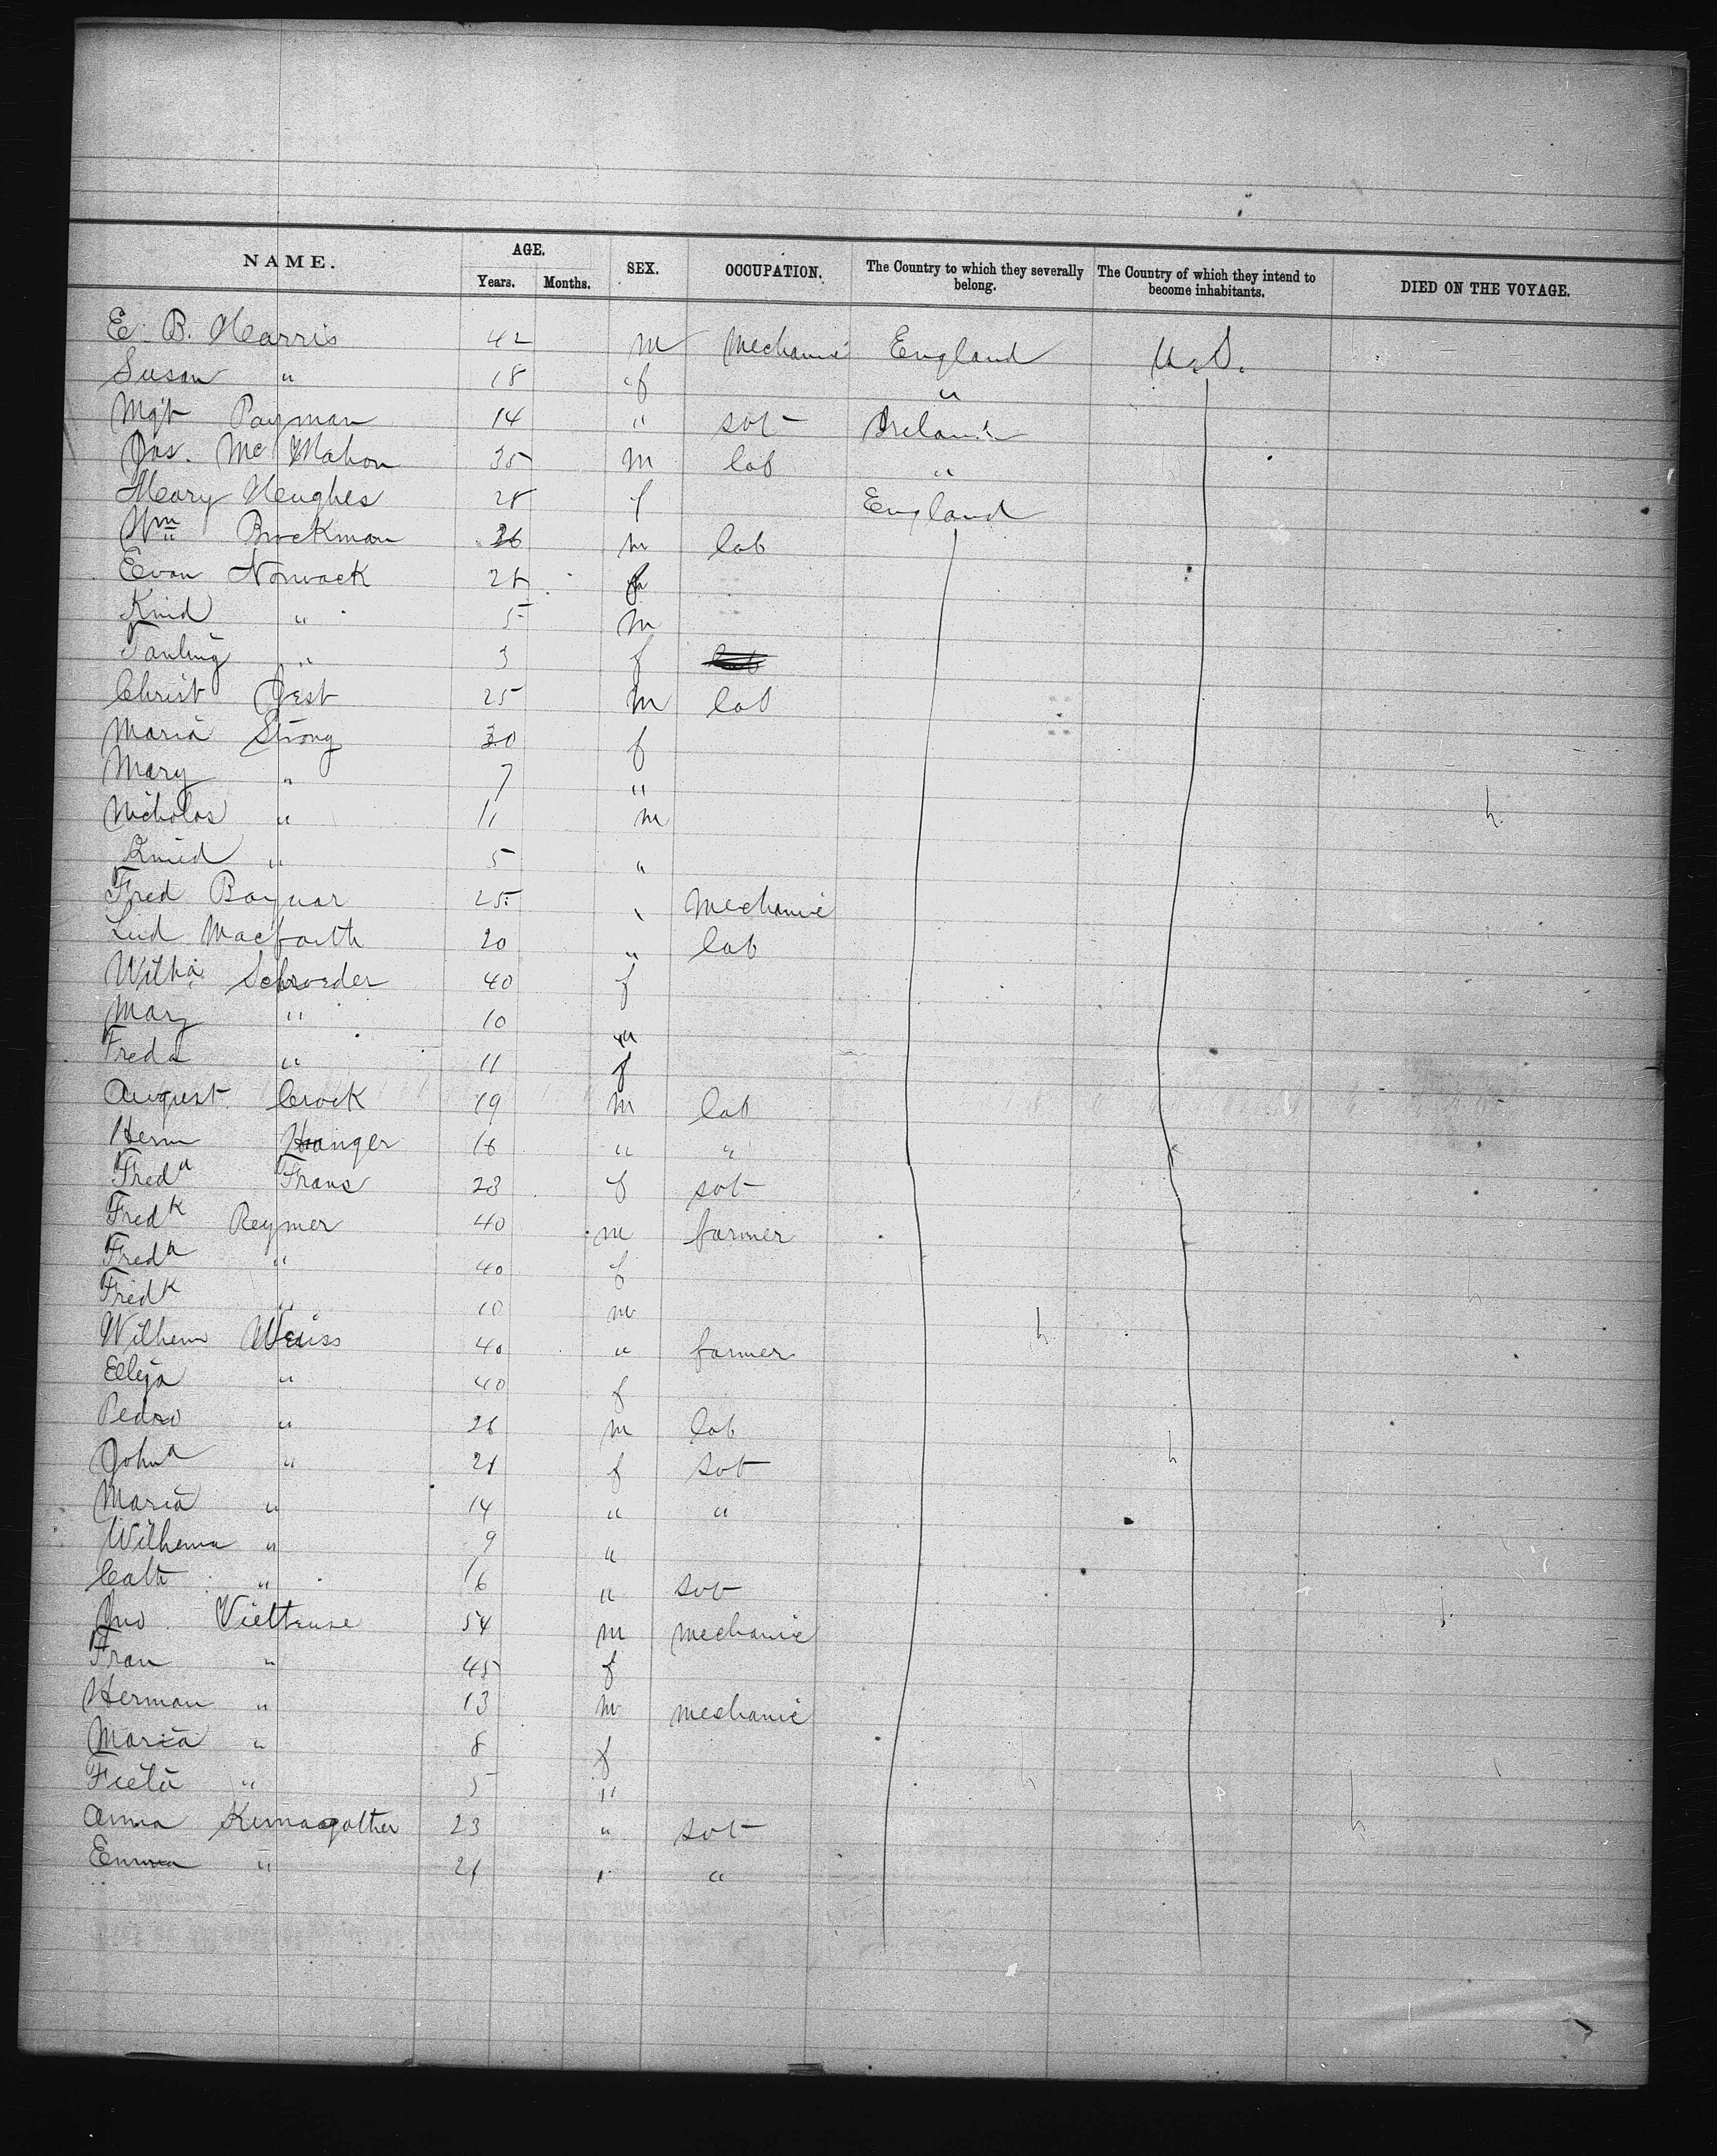 NAME. AGE. Years. Months. SEX. OCCUPATION. The Country to which they severally belong. The Country of which they intend to become inhabitants. DIED ON THE VOYAGE.
E. B. Harris 42 m Mechanic England U.S.
Susan " 18 f "
Mgt Payman 14 " sot Ireland
Jas. McMahon 35 m lab "
Mary Hughes 28 f England
Wm Brockman 26 m lab
Evan Norwack 28 f
Knid " 5 m
Pauling " 3 f
Christ Jest 25 m lab
Maria Strong 30 f
Mary " 7 "
Nicholas " 11 m
Knied " 5 "
Fred Baynar 25 " Mechanic
Lud Macforth 20 " lab
Witha Schroeder 40 f
Mary " 10 "
Freda " 11 f
August Crock 19 m lab
Herm Hanger 18 " "
Freda Frans 23 f sot
Fredk Reymer 40 m farmer
Freda " 40 f
Fredk " 10 m
Wilhem Weiss 40 " farmer
Elleja " 40 f
Pedro " 26 m lab
Johna " 21 f sot
Maria " 14 " "
Wilhema " 9 "
Cath " 16 " sot
Jno. Vieltruse 54 m mechanic
Fran " 45 f
Herman " 13 m mechanic
Maria " 8 f
Fieta " 5 "
Anna Kumagather 23 " sot
Emma " 21 " "